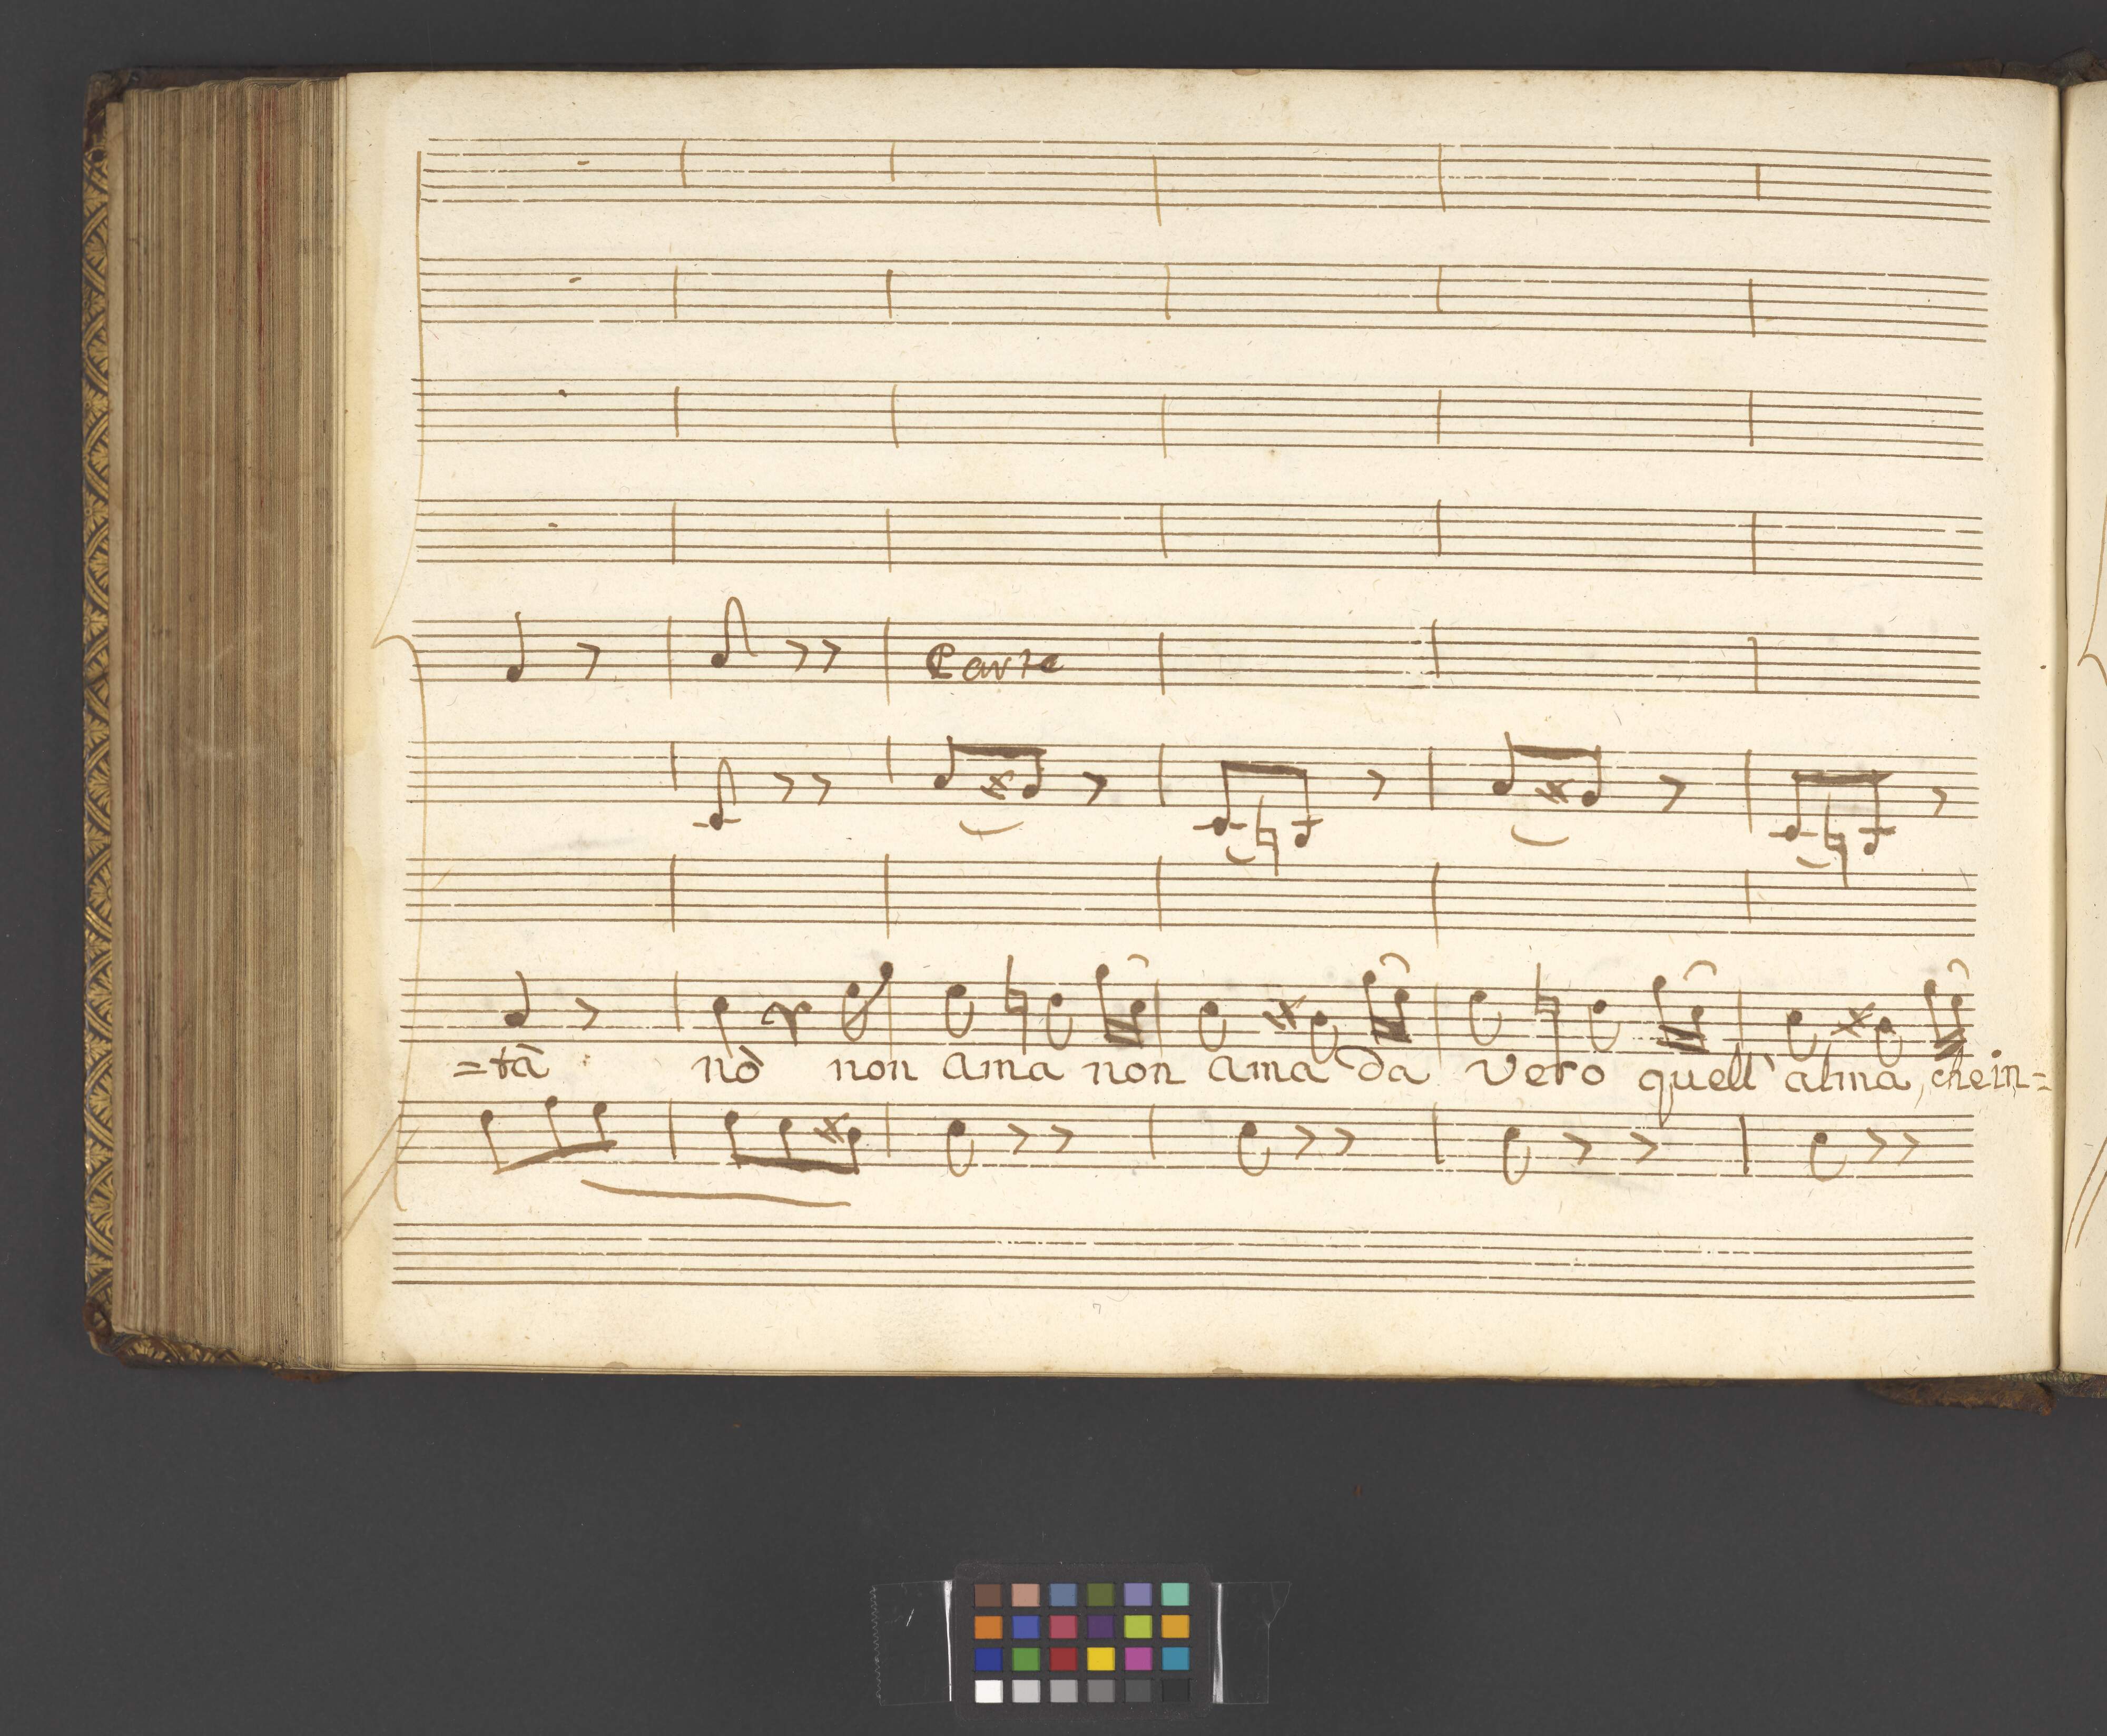 Parte
=tà nò non ama non ama da vero quell' alma, che in=